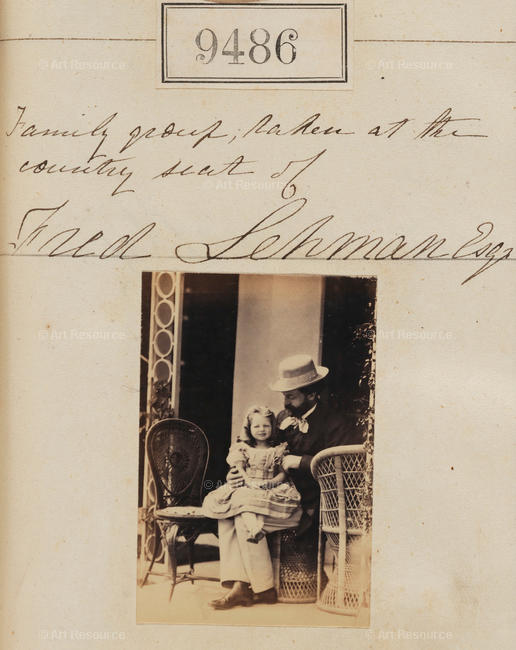 9486
Family group, taken at the
country seat of
Fred Lehman Esq
© Art Resource
© Art Resource
© Art Resource
© Art Resource
© Art Resource
© Art Resource
© Art Resource
© Art Resource
© Art Resource